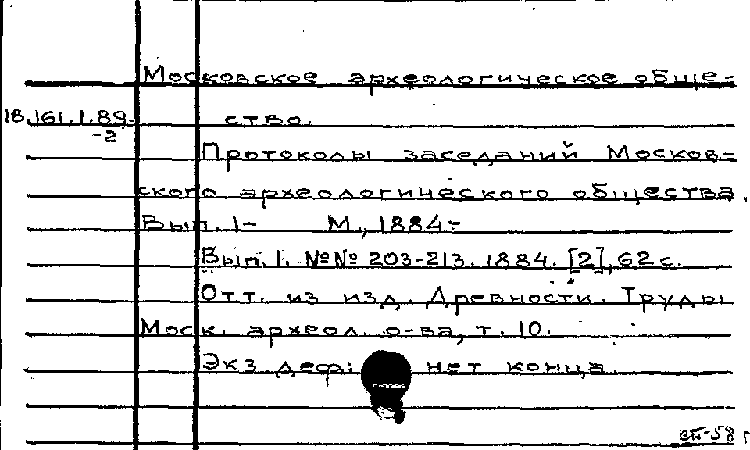 Московское археологическое обще-
18.161.1.89-2
ство.
Протоколы заседаний Москов-
ского археологического общества.
Вып. 1- М., 1884-
Вып. 1. №№ 203-213. 1884. [2], 62 с.
Отт. из изд. Древности. Труды
Моск. археол. о-ва, т. 10.
Экз. деф: нет конца